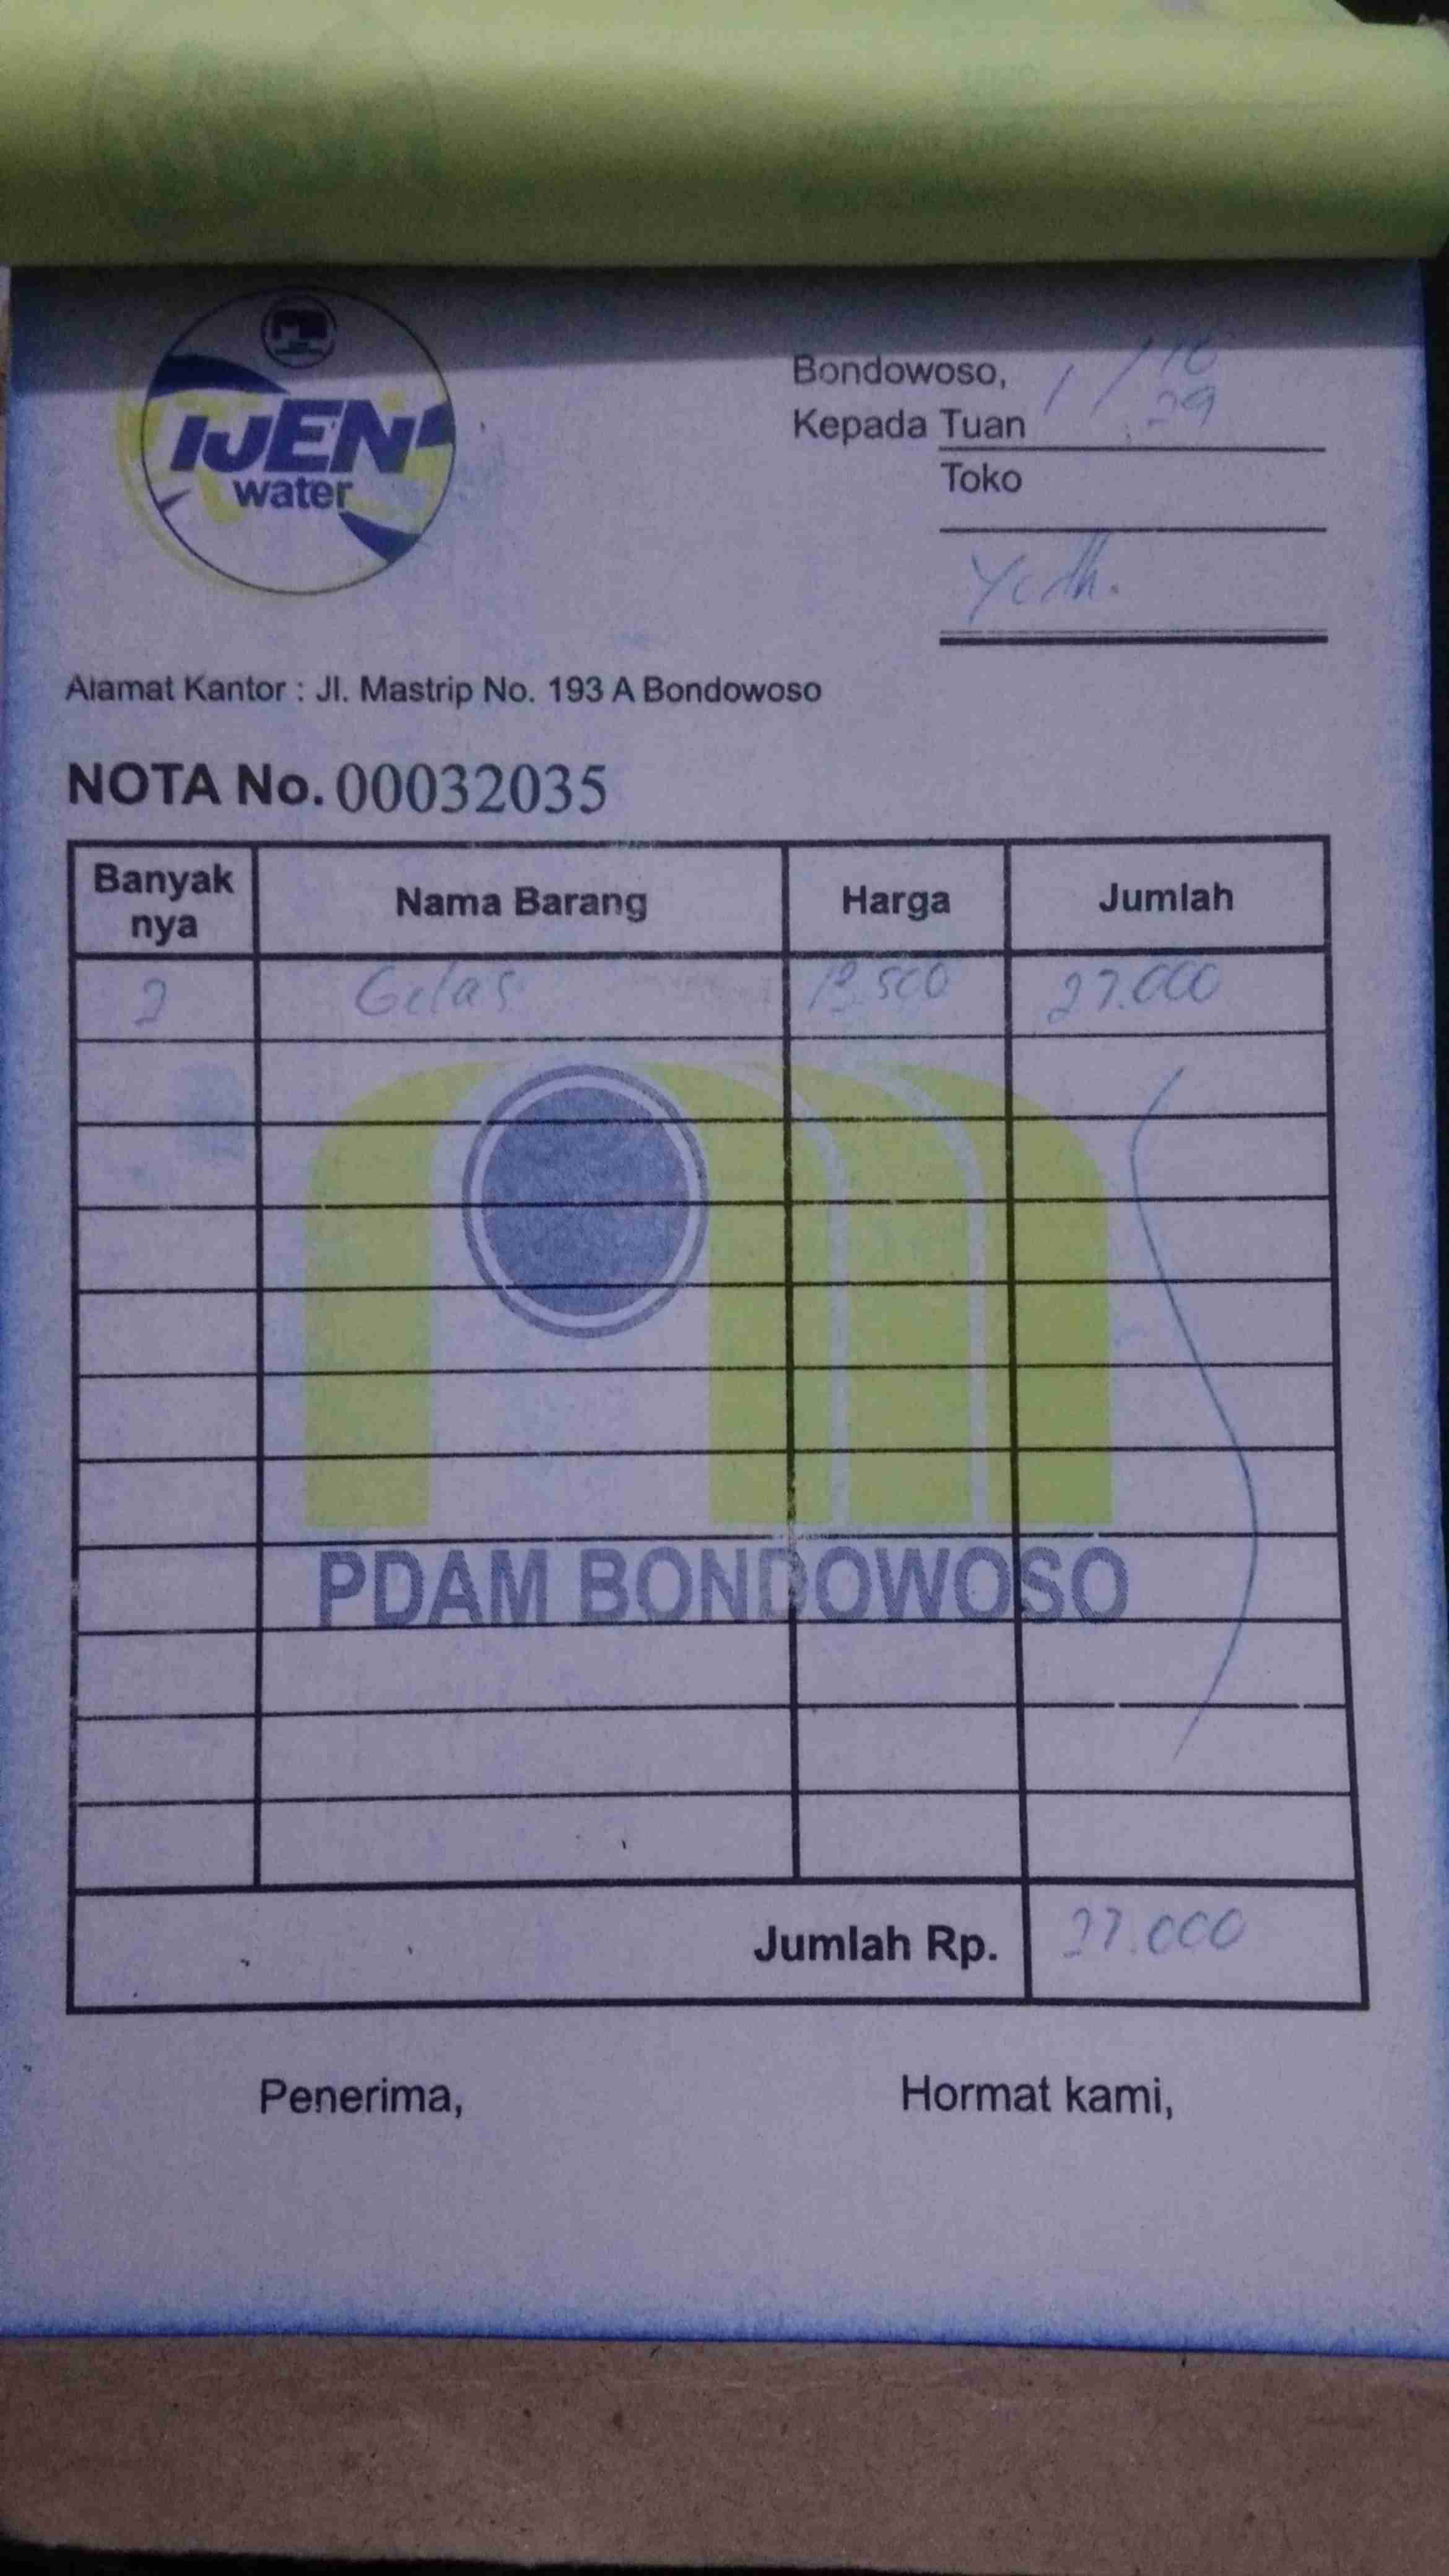 IJEN
water
Bondowoso, 1 / 10
Kepada Tuan
Toko
Alamat Kantor : Jl. Mastrip No. 193 A Bondowoso
NOTA No. 00032035
Banyak nya Nama Barang Harga Jumlah
2 Gelas 13.500 27.000
PDAM BONDOWOSO
Jumlah Rp. 27.000
Penerima, Hormat kami,